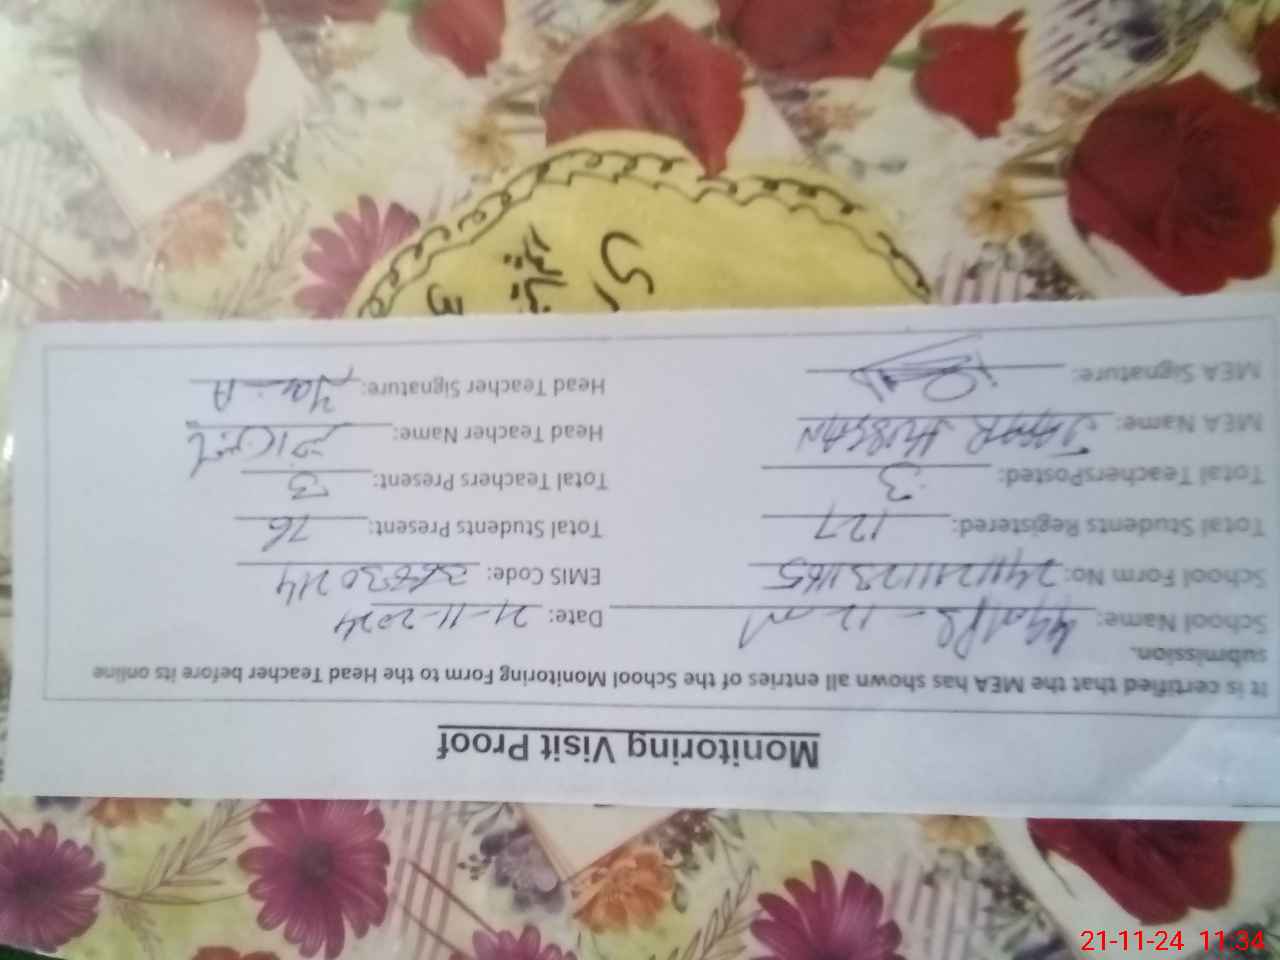 Monitoring Visit Proof
It is certified that the MEA has shown all entries of the School Monitoring Form to the Head Teacher before its online
submission.
School Name: Date: 21-11-2024
School Form No: 2411211231165 EMIS Code: 36630214
Total Students Registered: 127 Total Students Present: 76
Total TeachersPosted: 3 Total Teachers Present: 3
MEA Name: JAFAR HUSSAN Head Teacher Name:
MEA Signature: Head Teacher Signature:
21-11-24 11:34